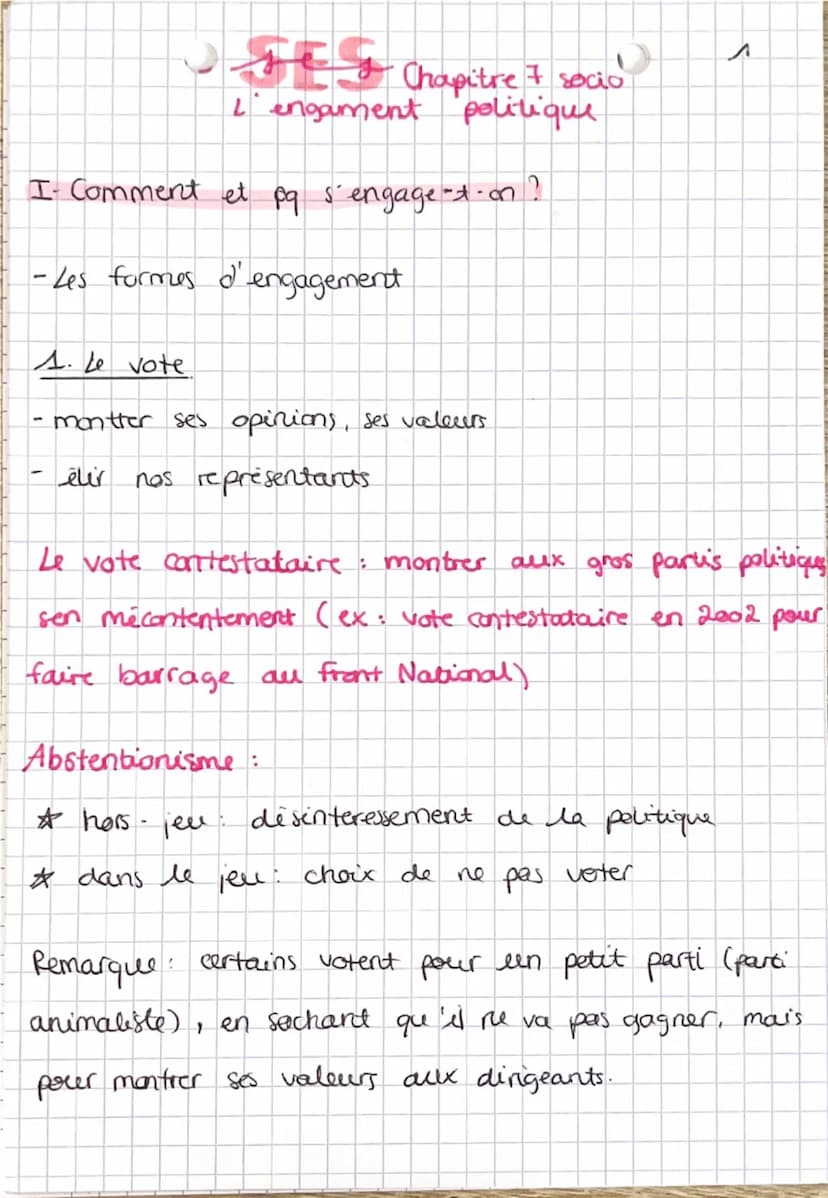 SES Chapitre 7 socio
1
L'engament politique
I- Comment et pq s'engage-t-on ?
- Les formes d'engagement
1. Le vote
- montrer ses opinions, ses valeurs
- élir nos représentants
Le vote contestataire : montrer aux gros partis politiques
son mécontentement (ex : vote contestataire en 2002 pour
faire barrage au front National)
Abstentionisme :
* hors-jeu : désinteressement de la politique
* dans le jeu : choix de ne pas voter
Remarque : certains votent pour un petit parti (parti
animaliste), en sachant qu'il ne va pas gagner, mais
pour montrer ses valeurs aux dirigeants.